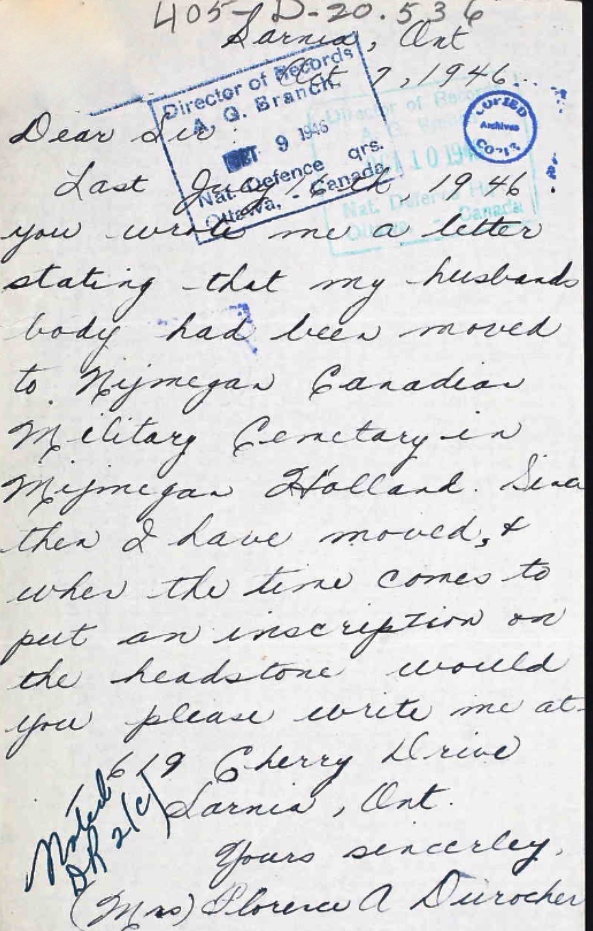 405-D-20.536
Sarnia, Ont
Oct 7, 1946.
Director of Records
A. G. Branch
OCT 9 1946
Nat. Defence qrs.
Ottawa, - Canada
Director of Records
OCT 10 1946
Nat. Defence
Ottawa - Canada
COPIED
Archives
Dear Sir:
Last July 16th, 1946
you wrote me a letter
stating that my husbands
body had been moved
to Nijmegan Canadian
Military Cemetary in
Nijmegan Holland. Since
then I have moved, &
when the time comes to
put an inscription on
the headstone would
you please write me at
619 Cherry Drive
Sarnia, Ont.
Yours sincerley,
(Mrs) Florence A Durocher
Noted
DR 2(c)